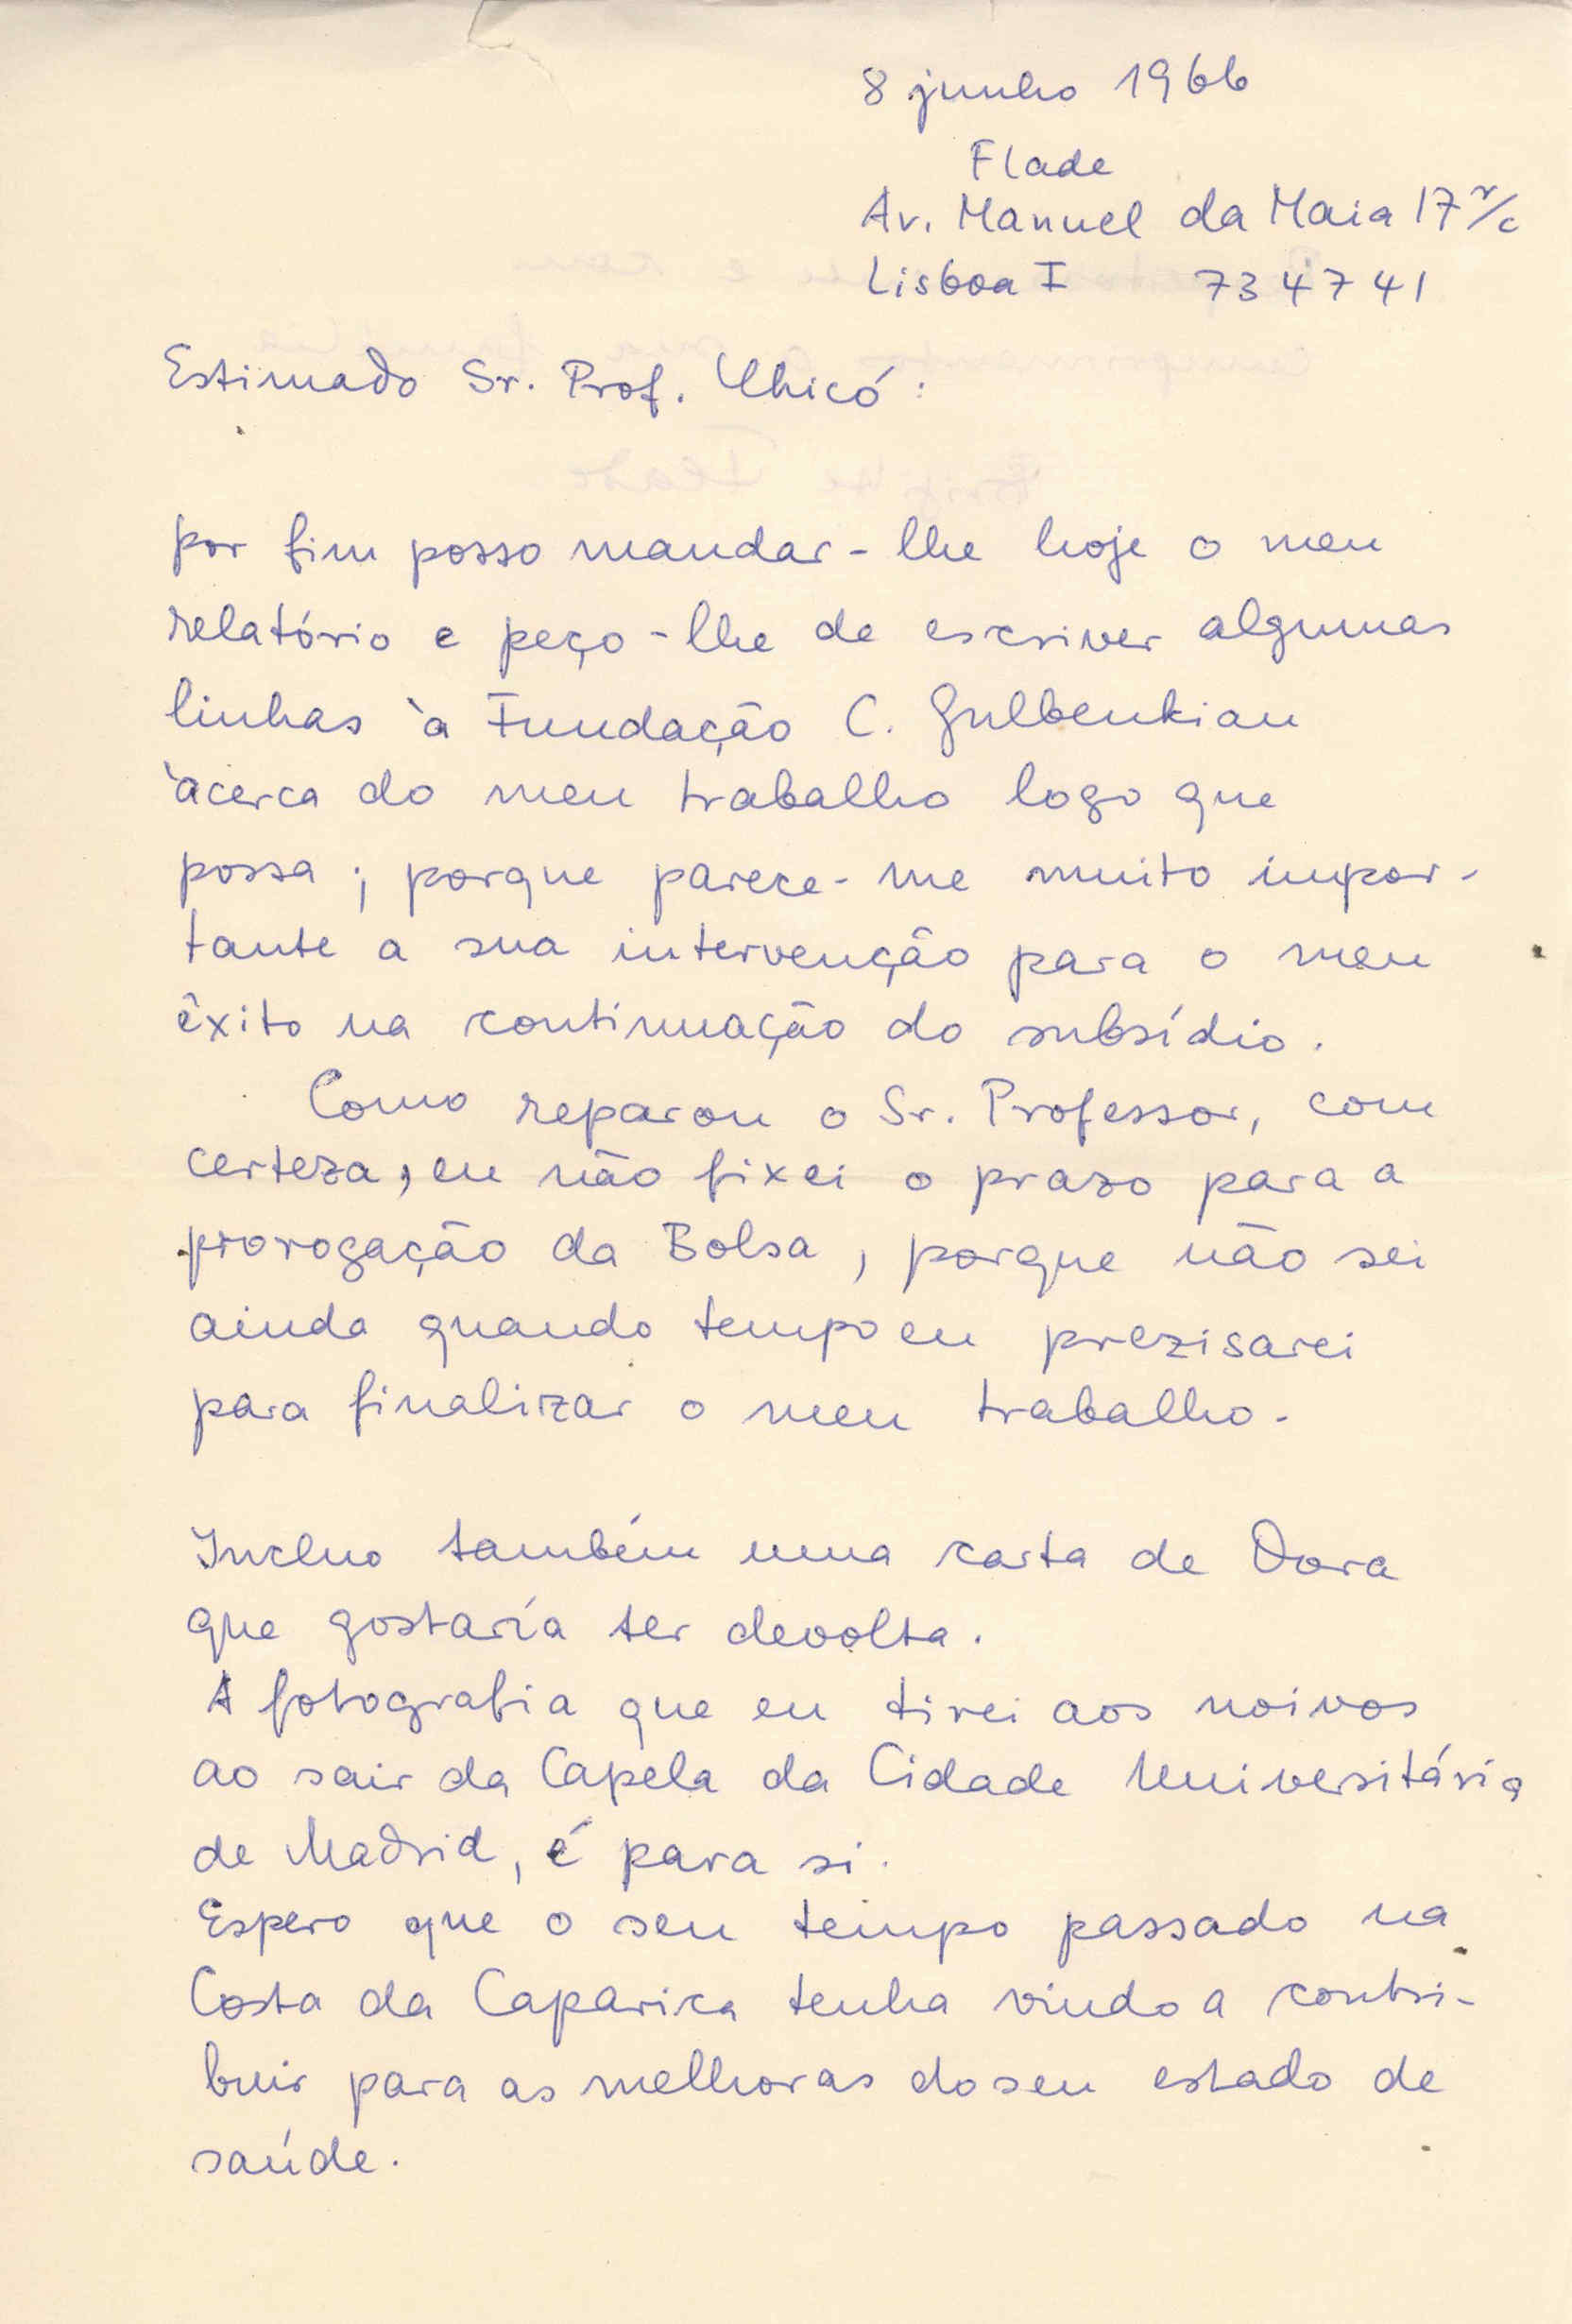 8 junho 1966
Flade
Av. Manuel da Maia 17 r/c
Lisboa I 734741
Estimado Sr. Prof. Chicó:
por fim posso mandar-lhe hoje o meu
relatório e peço-lhe de escriver algumas
linhas à Fundação C. Gulbenkian
àcerca do meu trabalho logo que
possa; porque parece-me muito impor-
tante a sua intervenção para o meu
êxito na continuação do subsídio.
Como reparou o Sr. Professor, com
certeza, eu não fixei o prazo para a
prorogação da Bolsa, porque não sei
ainda quando tempo eu prezisarei
para finalizar o meu trabalho.
Incluo também uma carta de Dora
que gostaría ter devolta.
A fotografia que eu tirei aos noivos
ao sair da Capela da Cidade Universitária
de Madrid, é para si.
Espero que o seu tempo passado na
Costa da Caparica tenha vindo a contri-
buir para as melhoras do seu estado de
saúde.